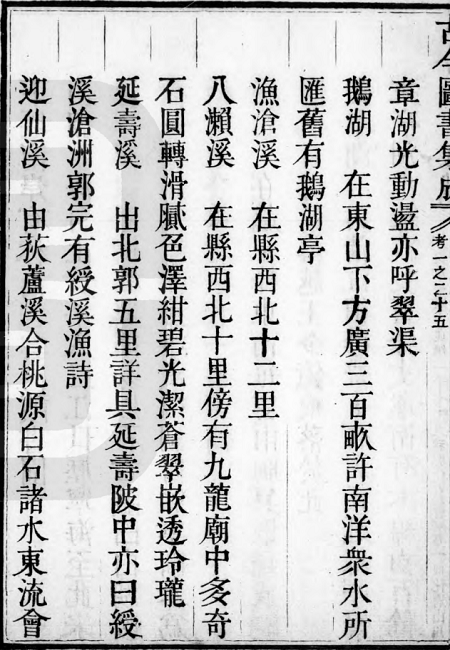 古今圖書集成 考一之二十五
章湖光動盪亦呼翠渠
鵝湖 在東山下方廣三百畝許南洋衆水所
匯舊有鵝湖亭
漁滄溪 在縣西北十二里
八瀨溪 在縣西北十里傍有九龍廟中多奇
石圓轉滑膩色澤紺碧光潔蒼翠嵌透玲瓏
延壽溪 出北郭五里詳具延壽陂中亦曰綬
溪滄洲郭完有綬溪漁詩
迎仙溪 由荻蘆溪合桃源白石諸水東流會